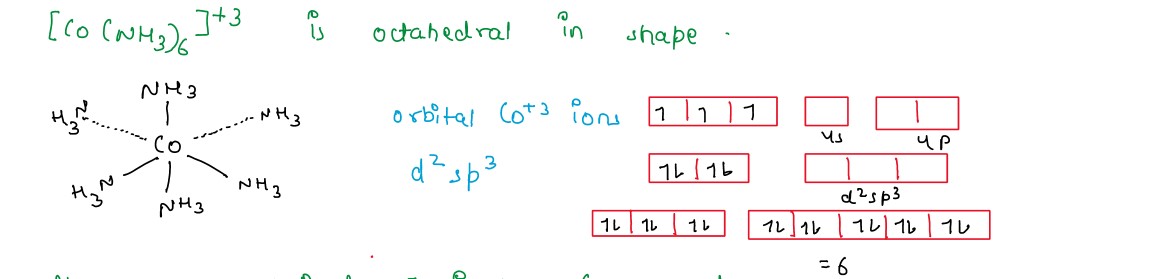 [Co (NH3)6]+3 is octahedral in shape .
NH3
H3N NH3
Co
H3N NH3
NH3
orbital Co+3 ions 1 1 1
4s 4p
d2sp3 1L 1L
d2sp3
1L 1L 1L 1L 1L 1L 1L 1L
= 6